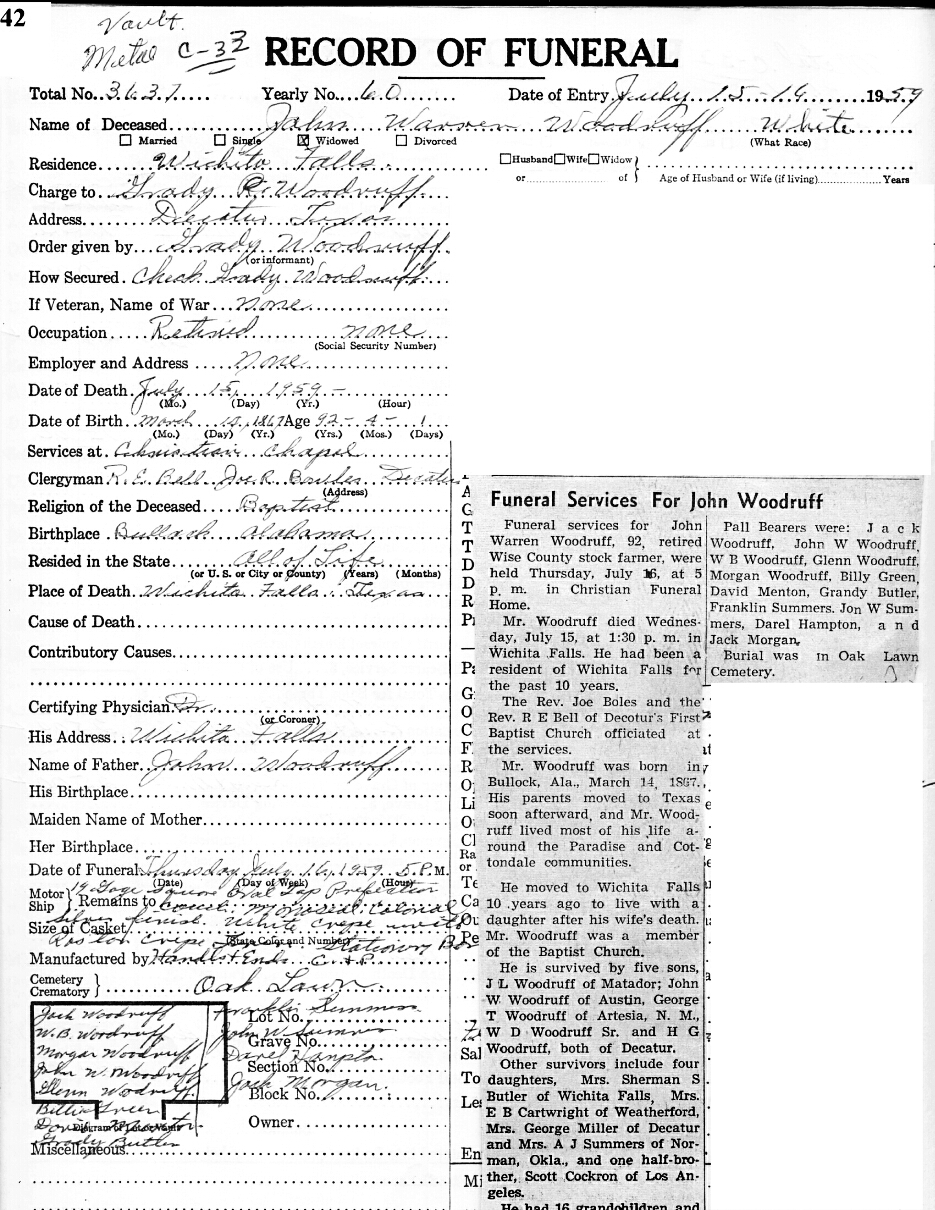 42
Vault.
Metal C-33
RECORD OF FUNERAL
Total No. 3637 Yearly No. 60 Date of Entry July 15-16 1959
Name of Deceased John Warren Woodruff White
Married Single Widowed Divorced (What Race)
Residence Wichita Falls
Husband Wife Widow
or of Age of Husband or Wife (if living) Years
Charge to Grady R. Woodruff
Address Decatur Texas
Order given by Grady Woodruff
(or informant)
How Secured Check Grady Woodruff
If Veteran, Name of War None
Occupation Retired none
(Social Security Number)
Employer and Address None
Date of Death July 15, 1959 -
(Mo.) (Day) (Yr.) (Hour)
Date of Birth March 14, 1867 Age 92 - 4 - 1
(Mo.) (Day) (Yr.) (Yrs.) (Mos.) (Days)
Services at Christian Chapel
Clergyman R. E. Bell Joe R. Boules Decatur
(Address)
Religion of the Deceased Baptist
Birthplace Bullock Alabama
Resided in the State All of Life
(or U. S. or City or County) (Years) (Months)
Place of Death Wichita Falls Texas
Cause of Death
Contributory Causes
Certifying Physician Dr.
(or Coroner)
His Address Wichita Falls
Name of Father John Woodruff
His Birthplace
Maiden Name of Mother
Her Birthplace
Date of Funeral Thursday July 16, 1959 5 P.M.
(Date) (Day of Week) (Hour)
19 Gage Square Oval Top
Motor
Ship
Remains to
Colonial
Silver finish White crepe
Size of Casket
(State Color and Number)
Manufactured by
Cemetery
Crematory
Oak Lawn
Jack Woodruff
W.B. Woodruff
Morgan Woodruff
John W. Woodruff
Glenn Woodruff
Billie Green
Grady Butler
Lot No.
John W Summers
Grave No.
Darel Hampton
Section No.
Jack Morgan
Block No.
Owner
Miscellaneous
Funeral Services For John Woodruff
Funeral services for John
Warren Woodruff, 92, retired
Wise County stock farmer, were
held Thursday, July 16, at 5
p. m. in Christian Funeral
Home.
Mr. Woodruff died Wednes-
day, July 15, at 1:30 p. m. in
Wichita Falls. He had been a
resident of Wichita Falls for
the past 10 years.
The Rev. Joe Boles and the
Rev. R E Bell of Decotur's First
Baptist Church officiated at
the services.
Mr. Woodruff was born in
Bullock, Ala., March 14, 1867.
His parents moved to Texas
soon afterward, and Mr. Wood-
ruff lived most of his life a-
round the Paradise and Cot-
tondale communities.
He moved to Wichita Falls
10 years ago to live with a
daughter after his wife's death.
Mr. Woodruff was a member
of the Baptist Church.
He is survived by five sons,
J L Woodruff of Matador; John
W Woodruff of Austin, George
T Woodruff of Artesia, N. M.,
W D Woodruff Sr. and H G
Woodruff, both of Decatur.
Other survivors include four
daughters, Mrs. Sherman S
Butler of Wichita Falls, Mrs.
E B Cartwright of Weatherford,
Mrs. George Miller of Decatur
and Mrs. A J Summers of Nor-
man, Okla., and one half-bro-
ther, Scott Cockron of Los An-
geles.
He had 16 grandchildren and
Pall Bearers were: Jack
Woodruff, John W Woodruff,
W B Woodruff, Glenn Woodruff,
Morgan Woodruff, Billy Green,
David Menton, Grandy Butler,
Franklin Summers. Jon W Sum-
mers, Darel Hampton, and
Jack Morgan.
Burial was in Oak Lawn
Cemetery.